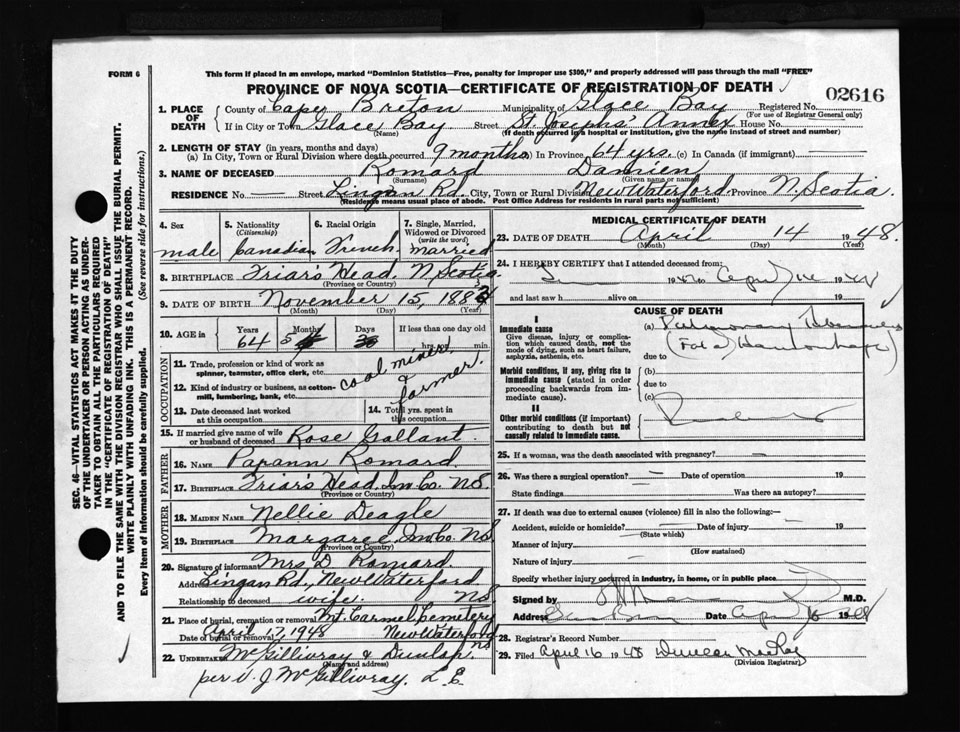 FORM 6
This form if placed in an envelope, marked "Dominion Statistics—Free, penalty for improper use $300," and properly addressed will pass through the mail "FREE"
PROVINCE OF NOVA SCOTIA—CERTIFICATE OF REGISTRATION OF DEATH
02616
1. PLACE OF DEATH
County of Cape Breton Municipality of Glace Bay Registered No.
(For use of Registrar General only)
If in City or Town Glace Bay Street St. Josephs' Annex House No.
(Name) (If death occurred in a hospital or institution, give the name instead of street and number)
2. LENGTH OF STAY (in years, months and days)
(a) In City, Town or Rural Division where death occurred 9 months In Province 64 yrs. (c) In Canada (if immigrant)
3. NAME OF DECEASED Romard Damien
(Surname) (Given name or names)
RESIDENCE No. Street Lingan Rd. City, Town or Rural Division New Waterford Province N. Scotia.
(Residence means usual place of abode. Post Office Address for residents in rural parts not sufficient)
4. Sex
male
5. Nationality
(Citizenship)
Canadian
6. Racial Origin
French
7. Single, Married, Widowed or Divorced
(write the word)
married
8. BIRTHPLACE Friar's Head, N. Scotia
(Province or Country)
9. DATE OF BIRTH November 15, 1883
(Month) (Day) (Year)
10. AGE in
Years Months Days If less than one day old
64 5 hrs. or min.
OCCUPATION
11. Trade, profession or kind of work as spinner, teamster, office clerk, etc. coal miner
12. Kind of industry or business, as cotton-mill, lumbering, bank, etc. & farmer.
13. Date deceased last worked at this occupation
14. Total yrs. spent in this occupation
15. If married give name of wife or husband of deceased Rose Gallant.
FATHER
16. NAME Papann Romard.
17. BIRTHPLACE Friar's Head, Inv. Co. N.S.
(Province or Country)
MOTHER
18. MAIDEN NAME Nellie Deagle
19. BIRTHPLACE Margaree, Inv. Co. N.S.
(Province or Country)
20. Signature of informant Mrs. D. Romard.
Address Lingan Rd., New Waterford
Relationship to deceased wife. N.S
21. Place of burial, cremation or removal Mt. Carmel Cemetery
Date of burial or removal April 17, 1948 New Waterford N.S
22. UNDERTAKER McGillivray & Dunlap.
(Name and address)
per V. J. McGillivray. L.E.
MEDICAL CERTIFICATE OF DEATH
23. DATE OF DEATH April 14 1948.
(Month) (Day) (Year)
24. I HEREBY CERTIFY that I attended deceased from:
19 to April 14 1948
and last saw h alive on 19
CAUSE OF DEATH
I
Immediate cause
Give disease, injury or complication which caused death, not the mode of dying, such as heart failure, asphyxia, asthenia, etc.
(a) Pulmonary
(Fatal Haemorrhage)
due to
Morbid conditions, if any, giving rise to immediate cause (stated in order proceeding backwards from immediate cause).
(b)
due to
(c)
II
Other morbid conditions (if important) contributing to death but not causally related to immediate cause.
25. If a woman, was the death associated with pregnancy? —
26. Was there a surgical operation? — Date of operation 19
State findings Was there an autopsy?
27. If death was due to external causes (violence) fill in also the following:—
Accident, suicide or homicide? Date of injury 19
(State which)
Manner of injury
(How sustained)
Nature of injury
Specify whether injury occurred in industry, in home, or in public place.
Signed by M.D.
Address Date April 16 1948
28. Registrar's Record Number
29. Filed April 16 1948 Duncan MacKay
(Division Registrar)
SEC. 46—VITAL STATISTICS ACT MAKES IT THE DUTY
OF THE UNDERTAKER OR PERSON ACTING AS UNDER-
TAKER TO OBTAIN ALL THE PARTICULARS REQUIRED
IN THE "CERTIFICATE OF REGISTRATION OF DEATH"
AND TO FILE THE SAME WITH THE DIVISION REGISTRAR WHO SHALL ISSUE THE BURIAL PERMIT.
WRITE PLAINLY WITH UNFADING INK. THIS IS A PERMANENT RECORD.
Every item of information should be carefully supplied. (See reverse side for instructions.)